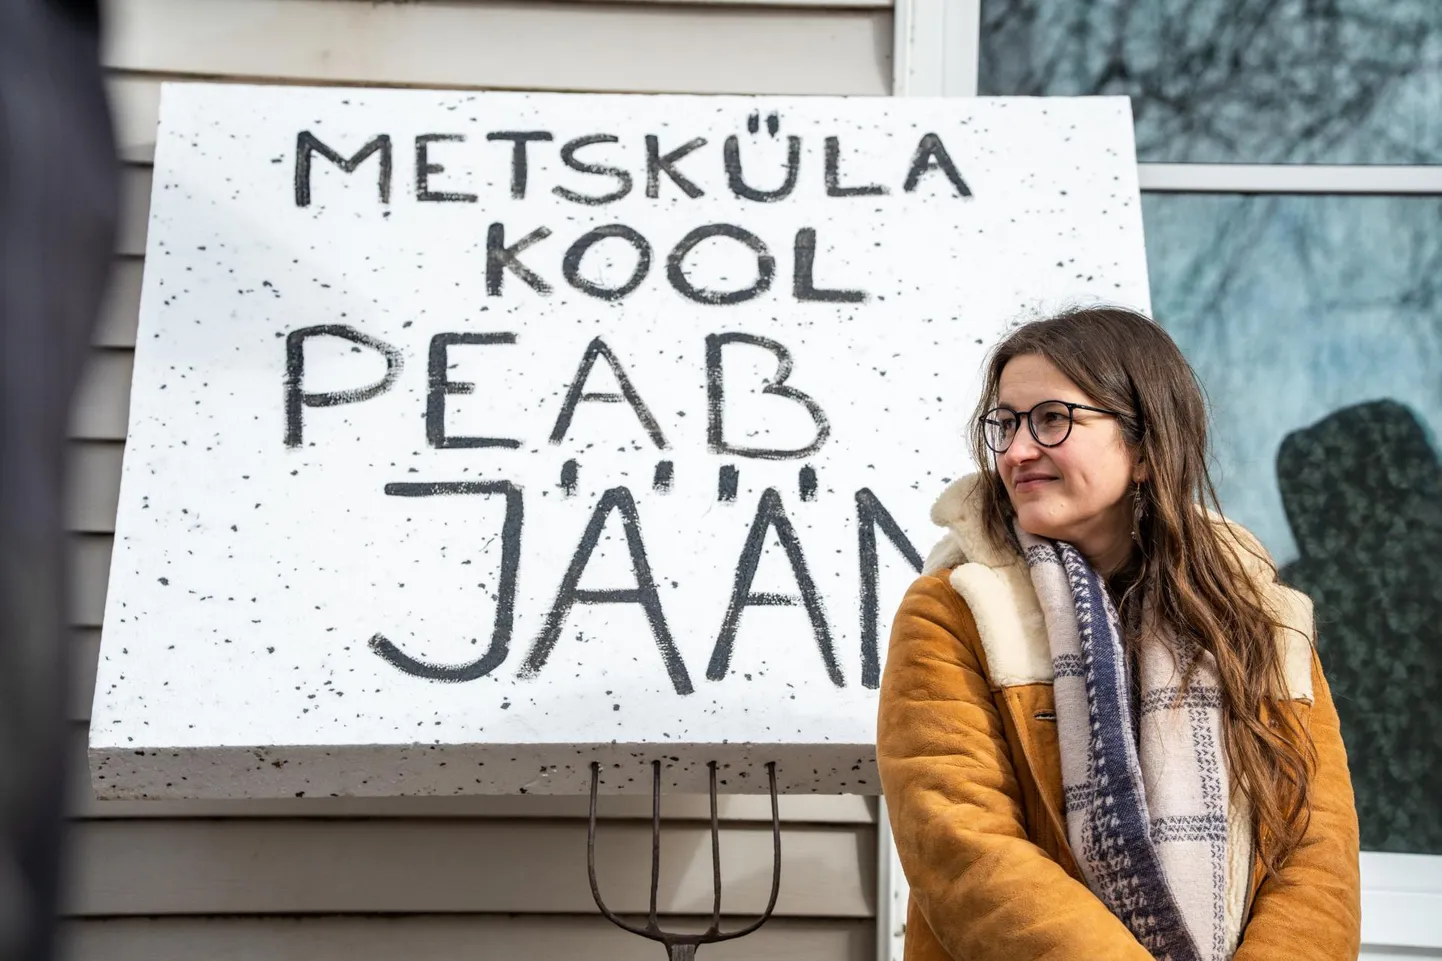 METSKÜLA
KOOL
PEAB
JÄÄN